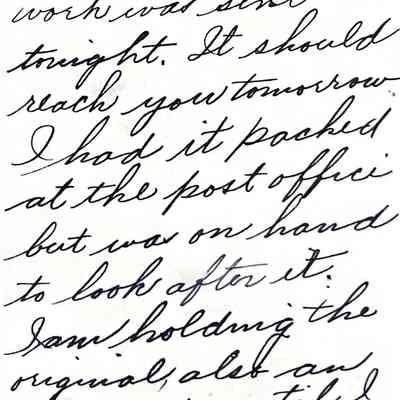 work was sent
tonight. It should
reach you tomorrow
I had it packed
at the post offici
but was on hand
to look after it.
I am holding the
original, also an
until I